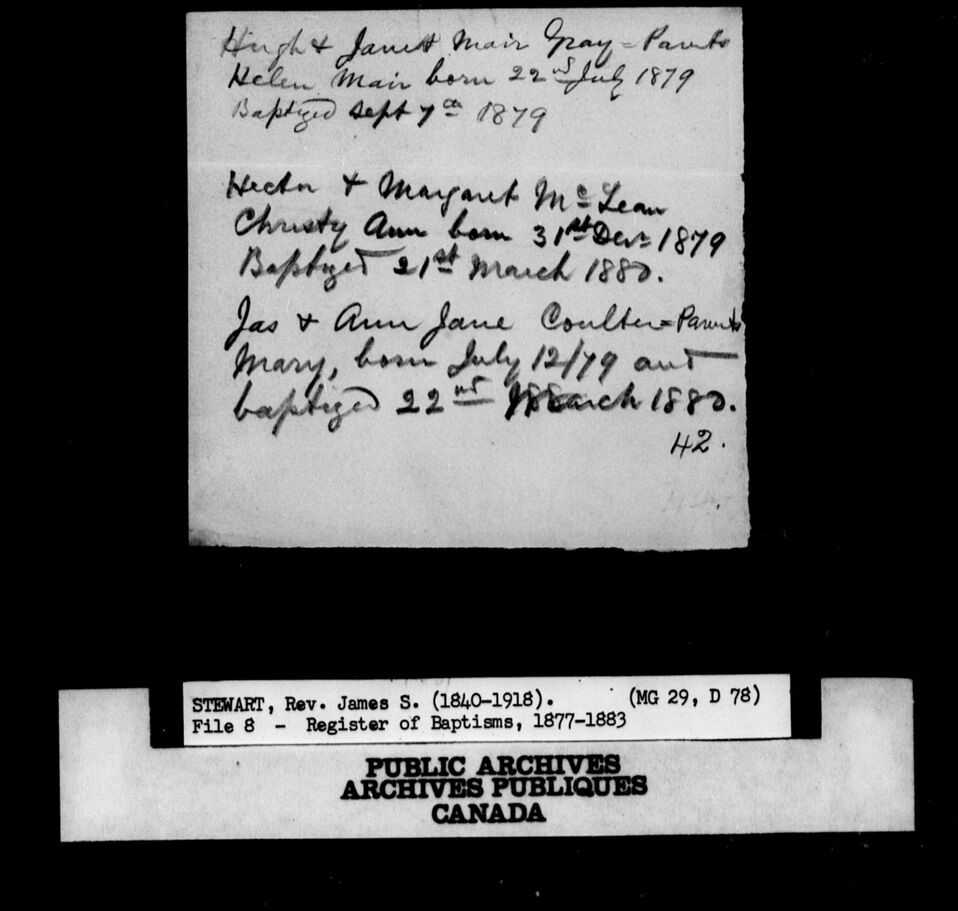 Hugh & Janet Mair Gray = Parents
Helen Mair born 22nd July 1879
Baptized Sept 7th 1879
Hector & Margaret McLean
Christy Ann born 31st Decr 1879
Baptized 21st March 1880.
Jas & Ann Jane Coulter = Parents
Mary, born July 12/79 and
baptized 22nd March 1880.
42.
STEWART, Rev. James S. (1840-1918). (MG 29, D 78)
File 8 - Register of Baptisms, 1877-1883
PUBLIC ARCHIVES
ARCHIVES PUBLIQUES
CANADA